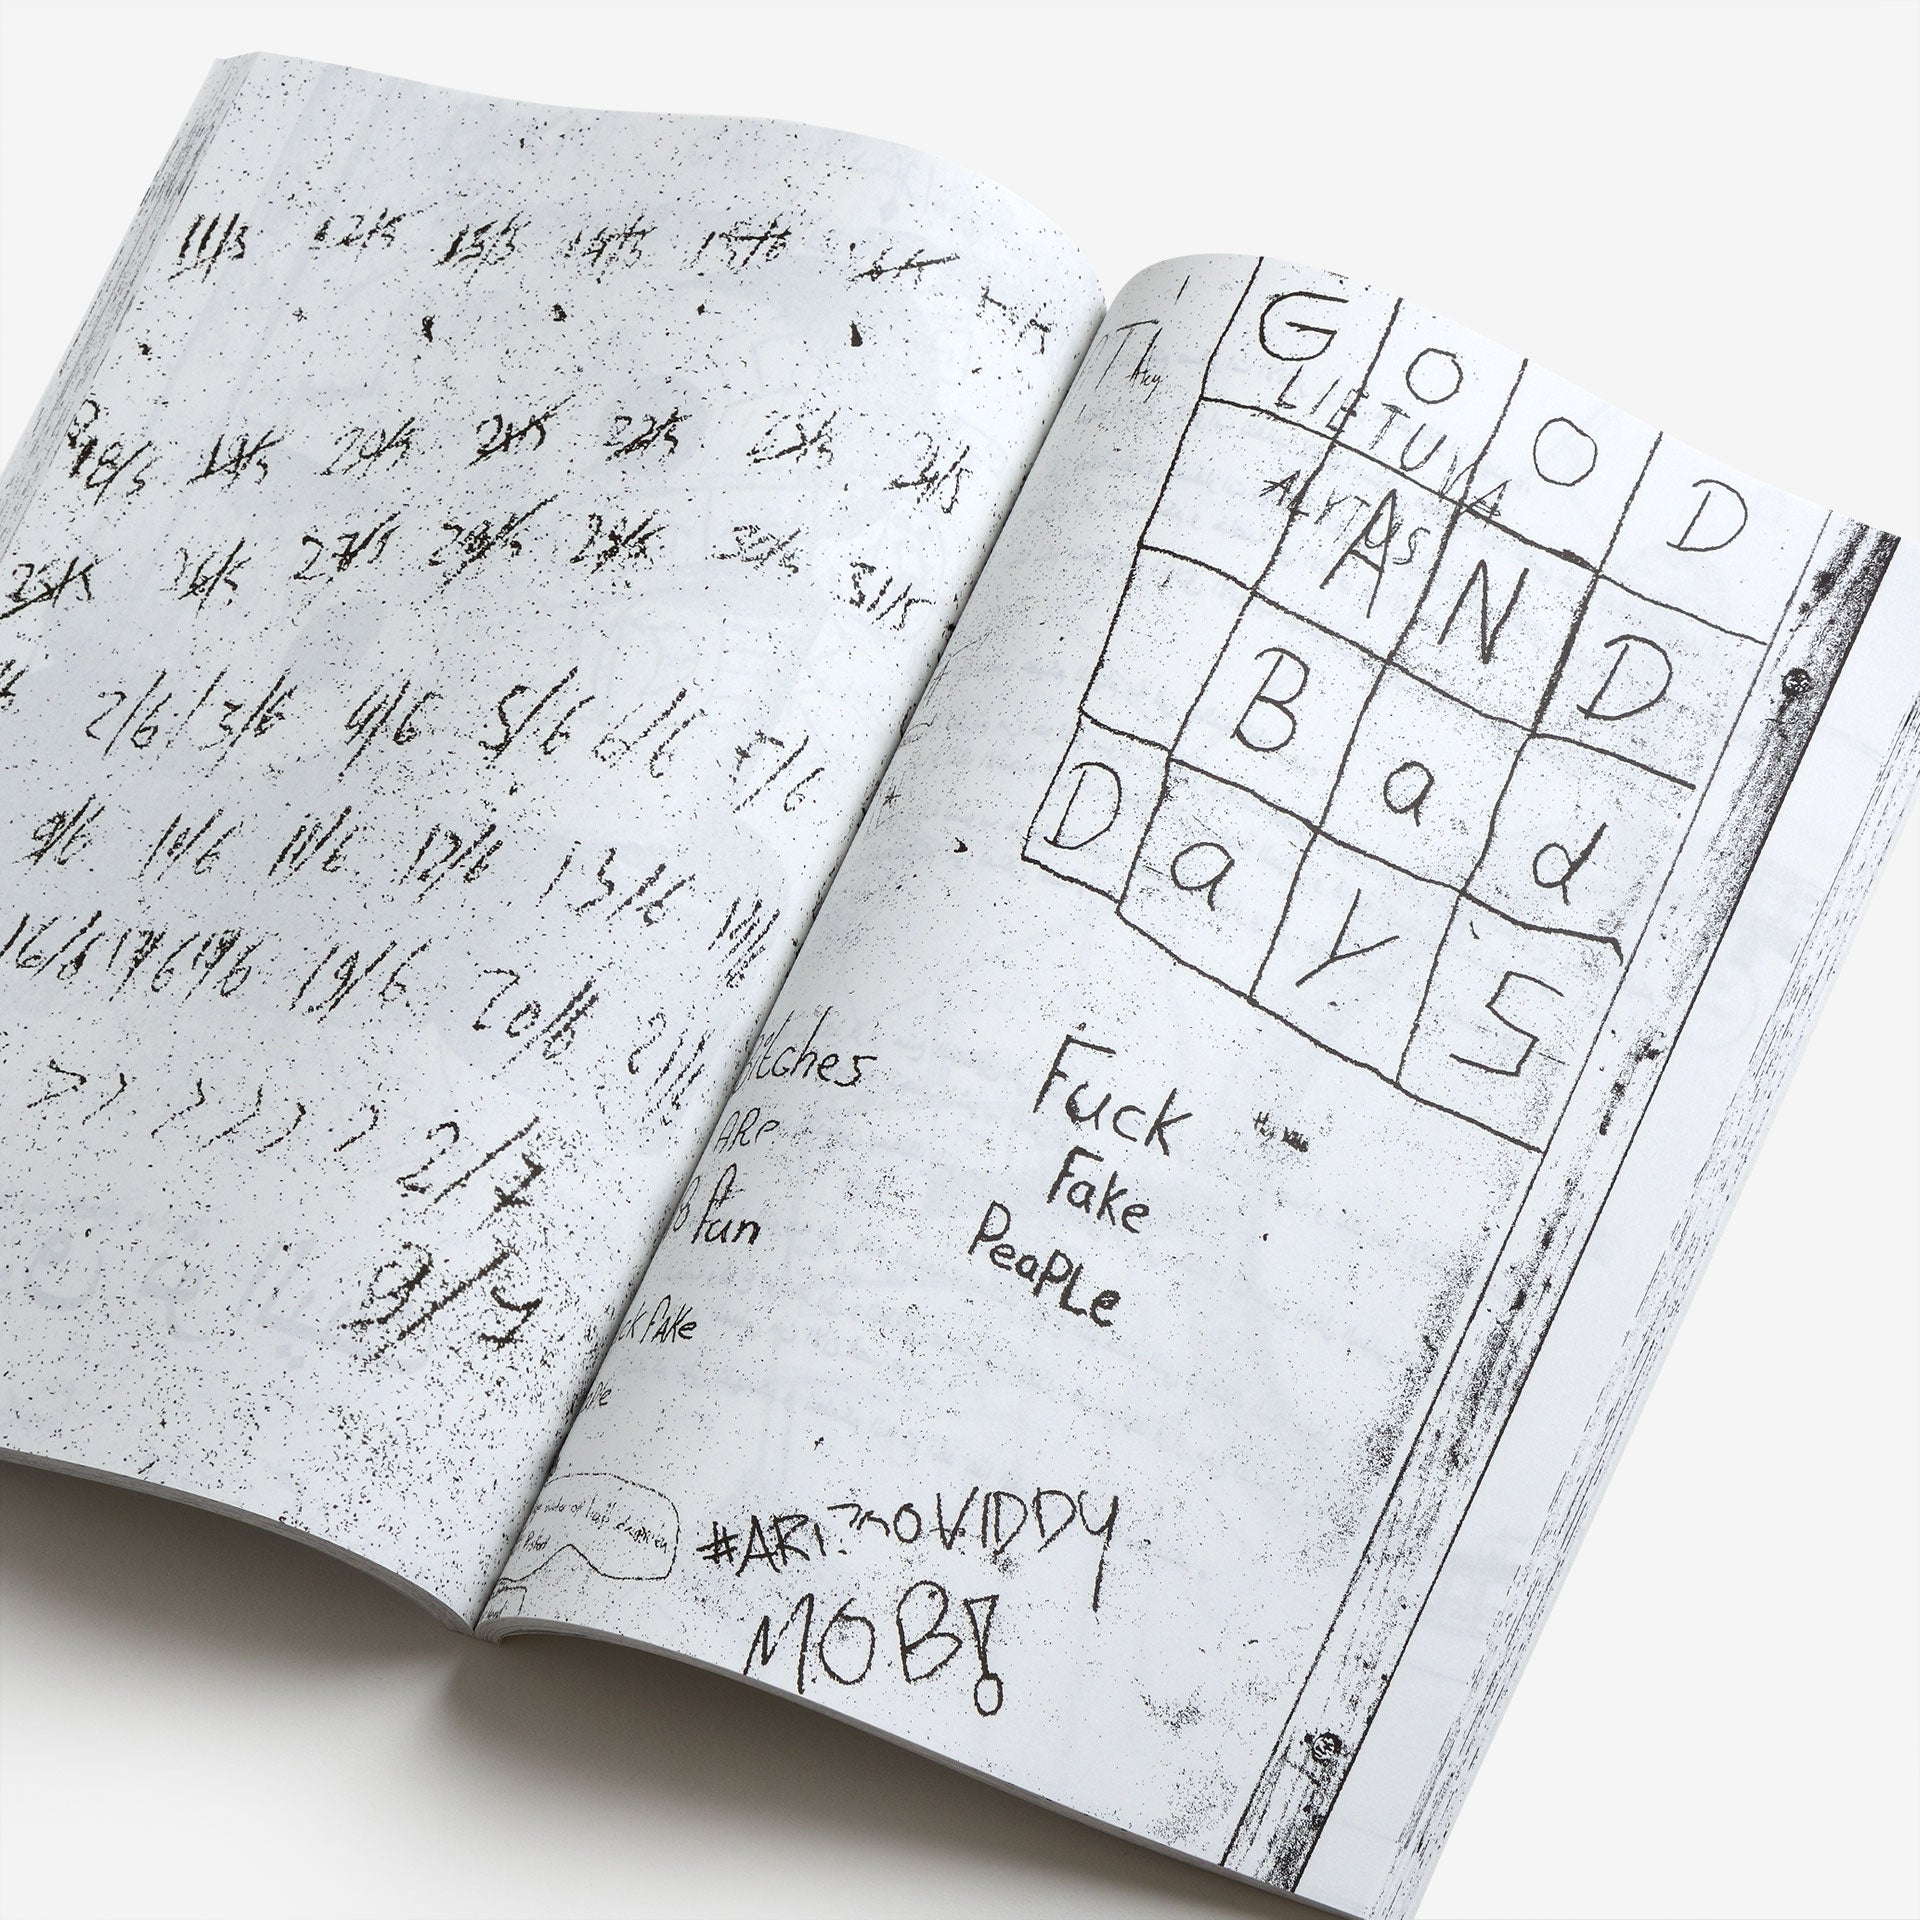 11/5 12/5 13/5 14/5 15/5 16/5
18/5 19/5 20/5 21/5 22/5 23/5 24/5
25/5 26/5 27/5 28/5 29/5 30/5 31/5
2/6 3/6 4/6 5/6 6/6 7/6
9/6 10/6 11/6 12/6 13/6 14/6
16/6 17/6 19/6 20/6 21/6
2/7
GOOD
LIETUVA
ALYTUS
AND
Bad
DaYS
itches
ARe
fun
Fuck
Fake
PeaPLe
ck fAKe
VIDDY
MOB!